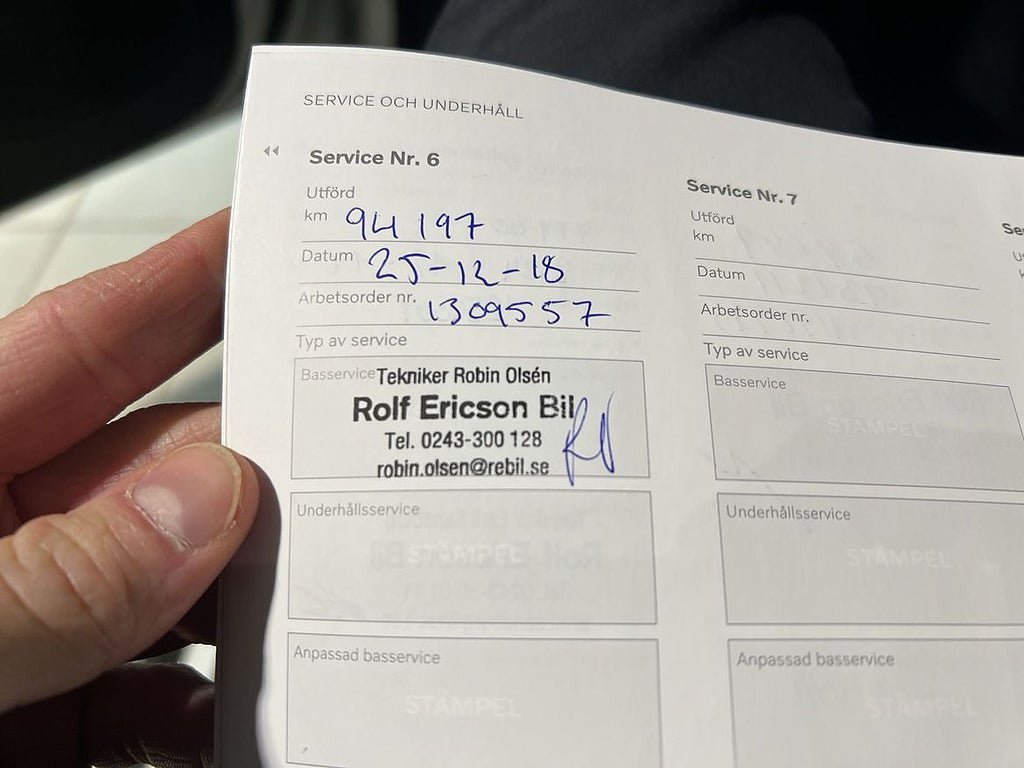 SERVICE OCH UNDERHÅLL
Service Nr. 6
Utförd
km 94 197
Datum 25-12-18
Arbetsorder nr. 1309557
Typ av service
Basservice Tekniker Robin Olsén
Rolf Ericson Bil
Tel. 0243-300 128
robin.olsen@rebil.se
Underhållsservice
STÄMPEL
Anpassad basservice
STÄMPEL
Service Nr. 7
Utförd
km
Datum
Arbetsorder nr.
Typ av service
Basservice
STÄMPEL
Underhållsservice
STÄMPEL
Anpassad basservice
STÄMPEL